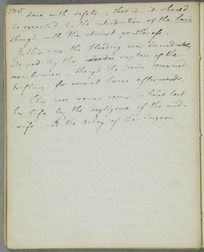 125
done with safety, that is, it should
be attempted by the introduction of the hand
though with the utmost gentleness.
In this case the bleeding was immediately
stopped by the rupture of the
membranes, though the pains remained
trifling for several hours afterwards.
This poor woman seems to have lost
her life by the negligence of the mid-
wife, & the delay of the surgeon